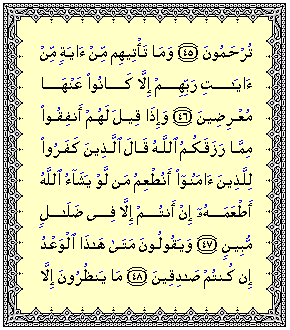 تُرْحَمُونَ ﴿٤٥﴾ وَمَا تَأْتِيهِم مِّنْ ءَايَةٍ مِّنْ
ءَايَـٰتِ رَبِّهِمْ إِلَّا كَانُوا۟ عَنْهَا
مُعْرِضِينَ ﴿٤٦﴾ وَإِذَا قِيلَ لَهُمْ أَنفِقُوا۟
مِمَّا رَزَقَكُمُ ٱللَّهُ قَالَ ٱلَّذِينَ كَفَرُوا۟
لِلَّذِينَ ءَامَنُوٓا۟ أَنُطْعِمُ مَن لَّوْ يَشَآءُ ٱللَّهُ
أَطْعَمَهُۥٓ إِنْ أَنتُمْ إِلَّا فِى ضَلَـٰلٍ
مُّبِينٍ ﴿٤٧﴾ وَيَقُولُونَ مَتَىٰ هَـٰذَا ٱلْوَعْدُ
إِن كُنتُمْ صَـٰدِقِينَ ﴿٤٨﴾ مَا يَنظُرُونَ إِلَّا